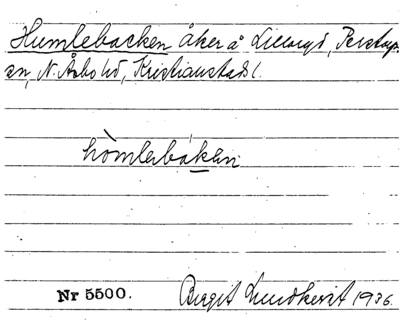 Humlebacken åker å Lillaryd, Perstorps
sn, N. Åsbo hd, Kristianstads l.
hòmlebákän
Nr 5500.
Birgit Lundkvist 1936.